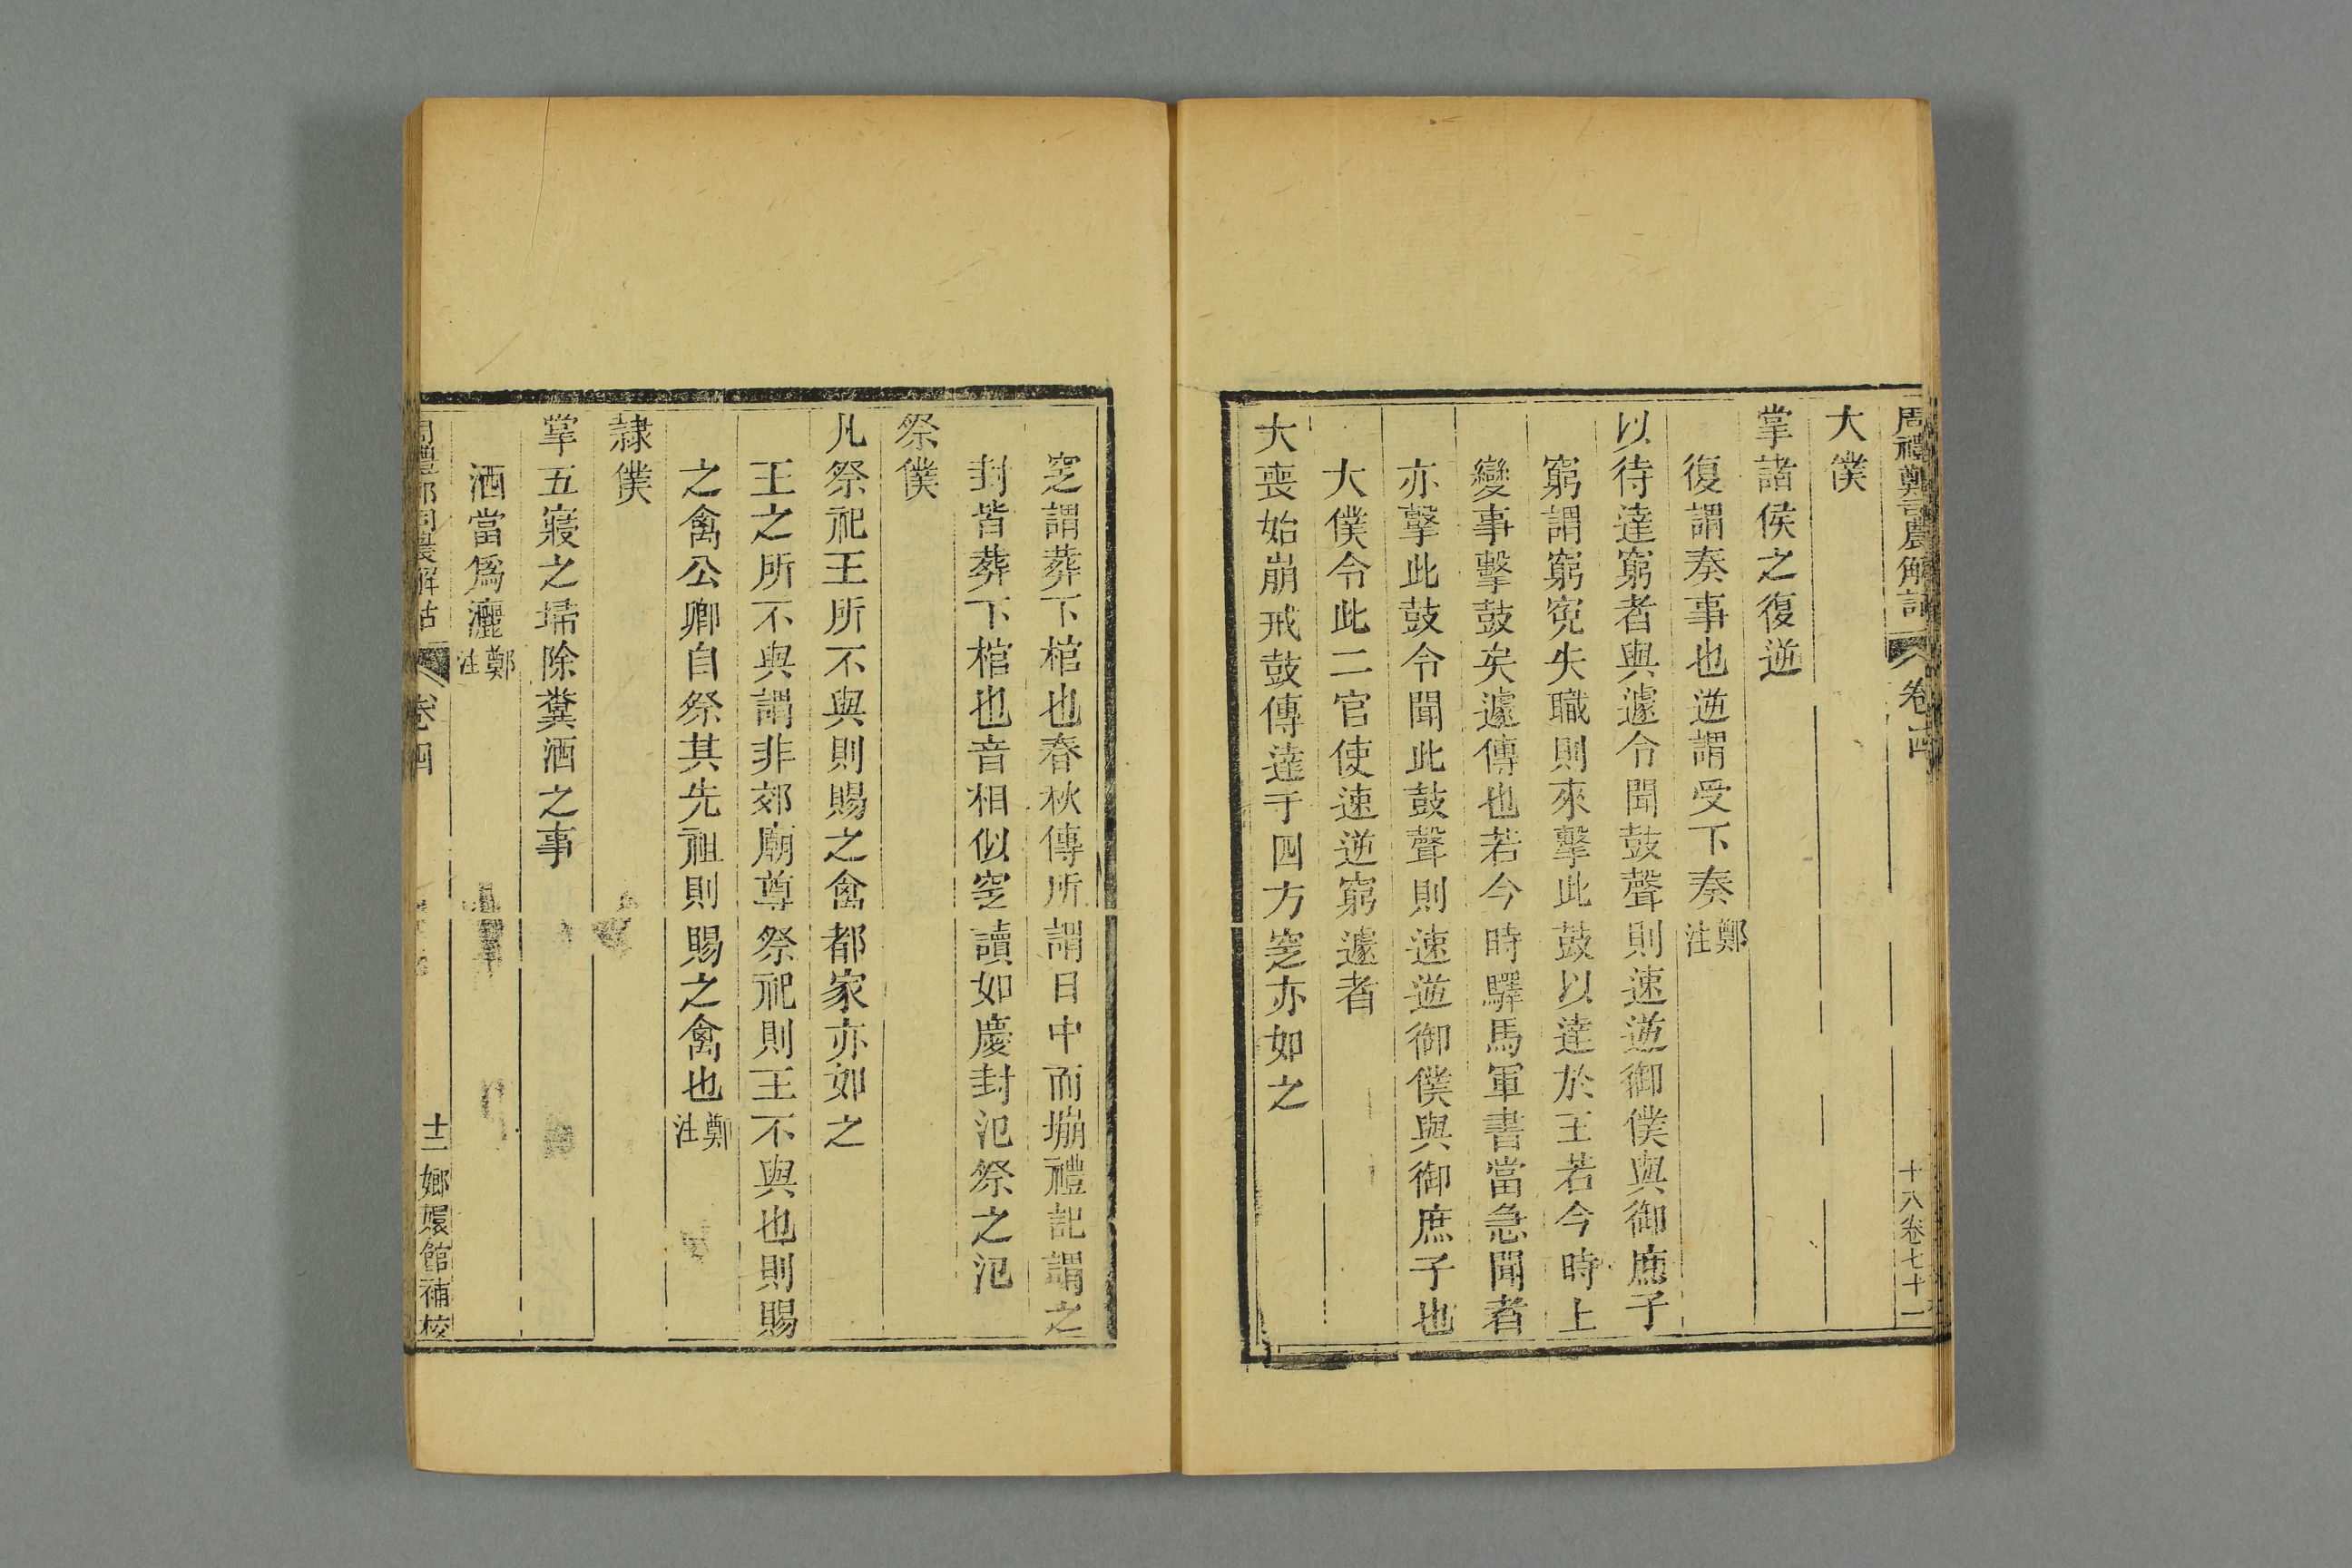 周禮鄭司農解詁
卷四
十八卷七十一
大僕
掌諸侯之復逆
復謂奏事也逆謂受下奏鄭注
以待達窮者與遽令聞鼓聲則速逆御僕與御庶子
窮謂窮冤失職則來擊此鼓以達於王若今時上
變事擊鼓矣遽傳也若今時驛馬軍書當急聞者
亦擊此鼓令聞此鼓聲則速逆御僕與御庶子也
大僕令此二官使速逆窮遽者
大喪始崩戒鼓傳達于四方窆亦如之
窆謂葬下棺也春秋傳所謂日中而塴禮記謂之
封皆葬下棺也音相似窆讀如慶封氾祭之氾
祭僕
凡祭祀王所不與則賜之禽都家亦如之
王之所不與謂非郊廟尊祭祀則王不與也則賜
之禽公卿自祭其先祖則賜之禽也鄭注
隷僕
掌五寢之埽除糞洒之事
洒當爲灑鄭注
周禮鄭司農解詁
卷四
十二
嫏嬛館補校